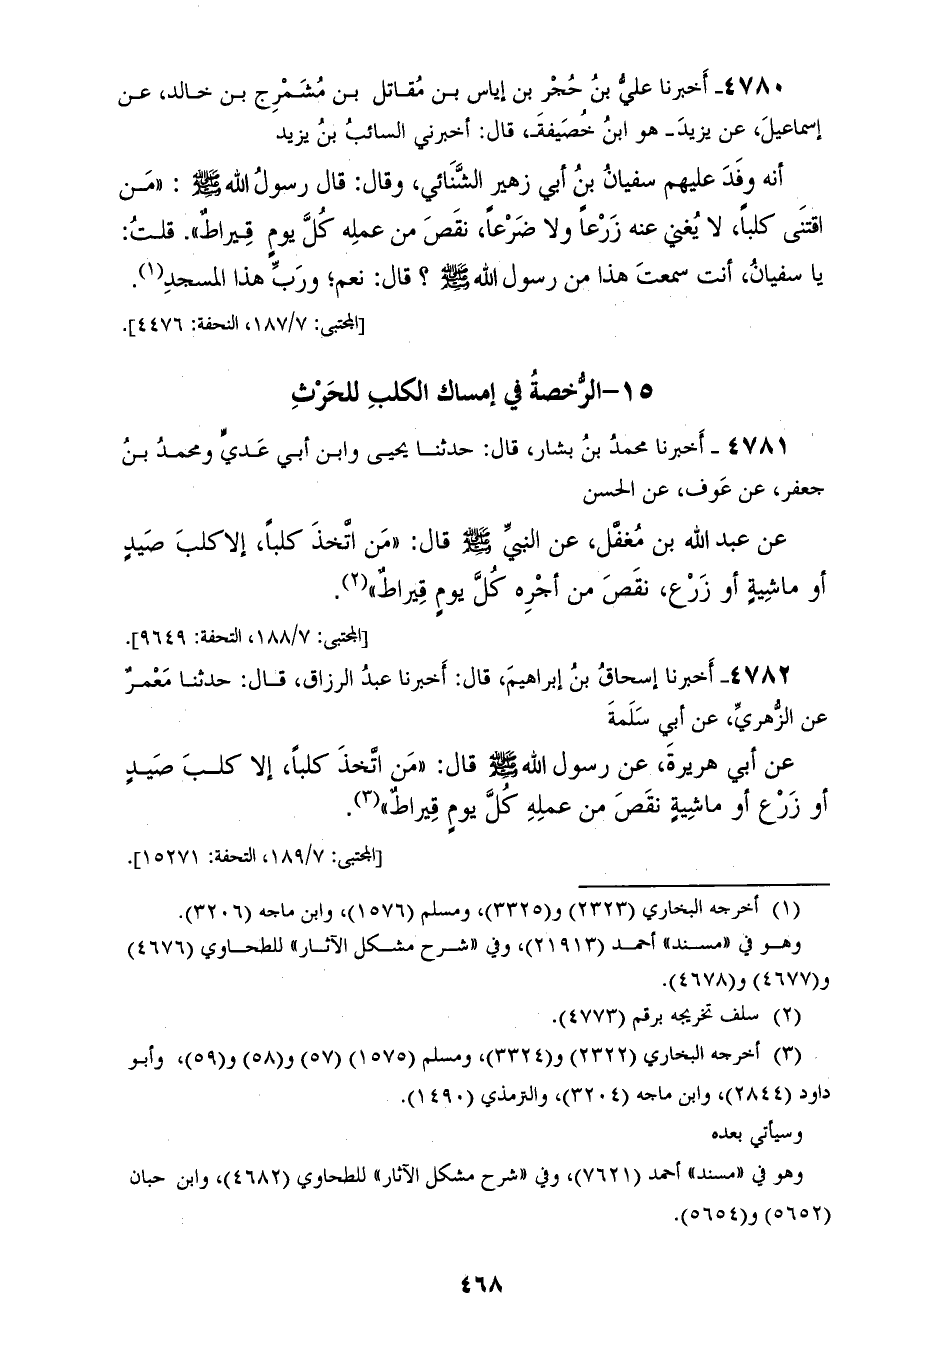 ٤٧٨٠ـ أَخبرنا عليُّ بنُ حُجْر بن إياس بـن مُقـاتل بـن مُشَـمْرِج بـن خـالد، عـن
إسماعيلَ، عن يزيدَ ـ هو ابنُ خُصَيفَةَ ـ، قال: أخبرني السائبُ بنُ يزيد
أنه وفَدَ عليهم سفيانُ بنُ أبي زهير الشَّنَائي، وقال: قال رسولُ الله ﷺ : «مَـن
اقتنَى كلباً، لا يُغني عنه زَرْعاً ولا ضَرْعاً، نقَصَ من عملِه كُلَّ يومٍ قِـيراطٌ». قلـتُ:
يا سفيانُ، أنت سمعتَ هذا من رسول الله ﷺ ؟ قال: نعم؛ ورَبِّ هذا المسجدِ(١).
[المجتبى: ١٨٧/٧، التحفة: ٤٤٧٦].
١٥-الرُّخصةُ في إمساك الكلبِ للحَرْثِ
٤٧٨١ ـ أَخبرنا محمدُ بنُ بشار، قال: حدثنـا يحيـى وابـن أبـي عَـديٍّ ومحمـدُ بـنُ
جعفر، عن عَوف، عن الحسن
عن عبد الله بن مُغفَّل، عن النبيِّ ﷺ قال: «مَن اتَّخذَ كلباً، إلا كلبَ صَيدٍ
أو ماشِيةٍ أو زَرْع، نقَصَ من أجْرِه كُلَّ يومٍ قِيراطٌ»(٢).
[المجتبى: ١٨٨/٧، التحفة: ٩٦٤٩].
٤٧٨٢ـ أَخبرنا إسحاقُ بنُ إبراهيمَ، قال: أخبرنا عبدُ الرزاق، قـال: حدثنـا مَعْمـرٌ
عن الزُّهريِّ، عن أبي سَلَمةَ
عن أبي هريرةَ، عن رسول الله ﷺ قال: «مَن اتَّخذَ كلباً، إلا كلـبَ صَيـدٍ
أو زَرْع أو ماشِيةٍ نقَصَ من عملِهِ كُلَّ يومٍ قِيراطٌ»(٣).
[المجتبى: ١٨٩/٧، التحفة: ١٥٢٧١].
(١) أخرجه البخاري (٢٣٢٣) و(٣٣٢٥)، ومسلم (١٥٧٦)، وابن ماجه (٣٢٠٦).
وهـو في «مسـند» أحمـد (٢١٩١٣)، وفي «شـرح مشـكل الآثـار» للطحـاوي (٤٦٧٦)
و(٤٦٧٧) و(٤٦٧٨).
(٢) سلف تخريجه برقم (٤٧٧٣).
(٣) أخرجه البخاري (٢٣٢٢) و(٣٣٢٤)، ومسلم (١٥٧٥) (٥٧) و(٥٨) و(٥٩)، وأبـو
داود (٢٨٤٤)، وابن ماجه (٣٢٠٤)، والترمذي (١٤٩٠).
وسيأتي بعده
وهو في «مسند» أحمد (٧٦٢١)، وفي «شرح مشكل الآثار» للطحاوي (٤٦٨٢)، وابن حبان
(٥٦٥٢) و(٥٦٥٤).
٤٦٨